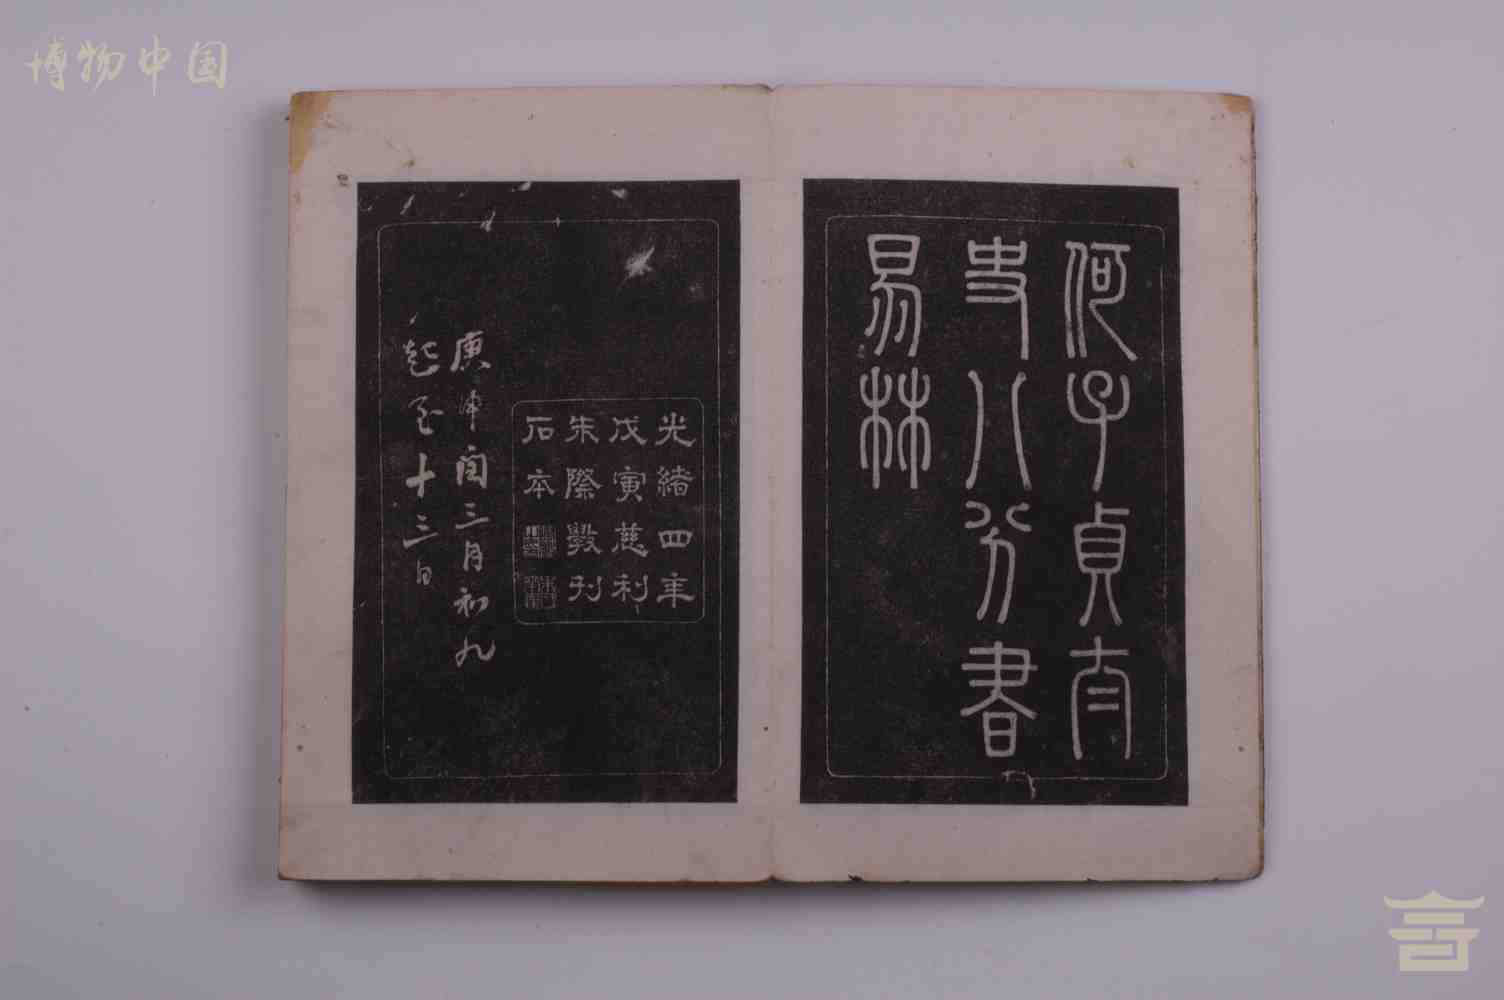 博物中国
何子貞太
史八分書
易林
光緒四年
戊寅慈利
朱際㲄刊
石本
庚申閏三月初九
起至十三日